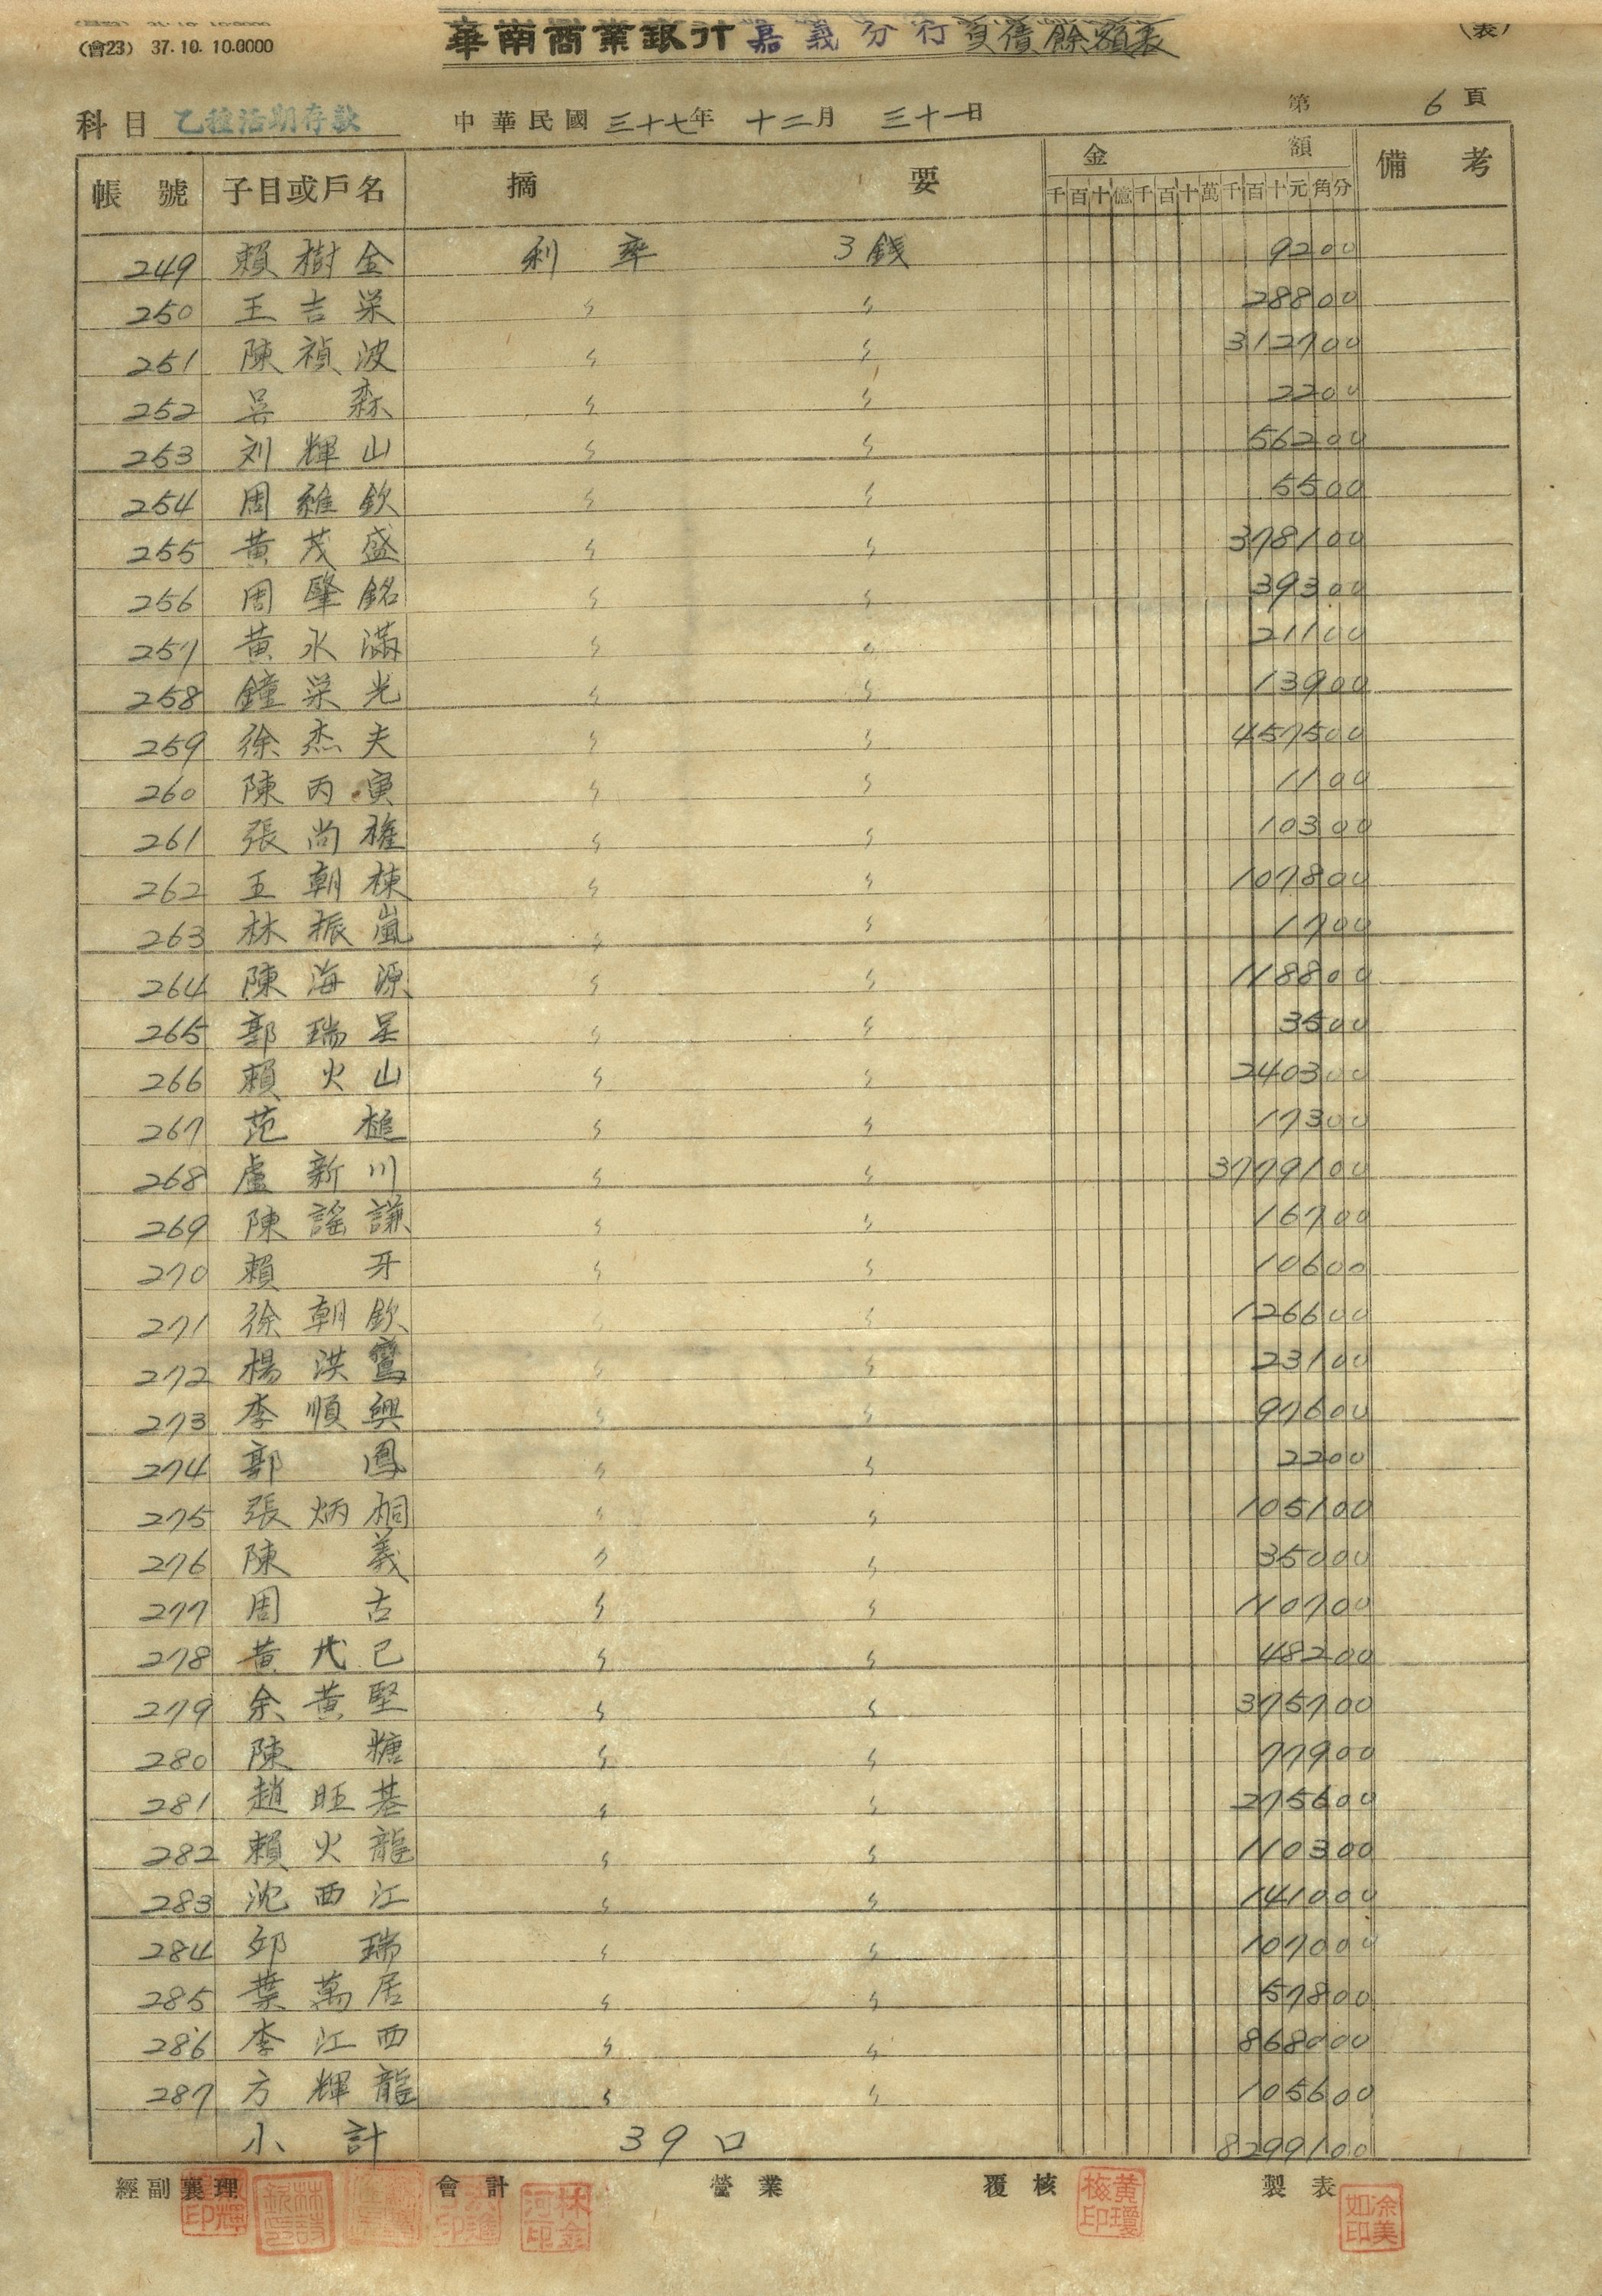 (會23) 37. 10. 10.0000
華南商業銀行 嘉義分行 負債餘額表 (表)
科目 乙種活期存款 中華民國三十七年十二月三十一日 第 6 頁
帳號 子目或戶名 摘要 金額 備考
千百十億千百十萬千百十元角分
249 賴樹金 利率 3錢 9200
250 王吉栄 〃 〃 28800
251 陳禎波 〃 〃 312700
252 吳森 〃 〃 2200
253 刘輝山 〃 〃 56200
254 周維欽 〃 〃 5500
255 黃茂盛 〃 〃 378100
256 周肇銘 〃 〃 39300
257 黃永滿 〃 〃 21100
258 鐘栄光 〃 〃 13900
259 徐杰夫 〃 〃 457500
260 陳丙寅 〃 〃 1100
261 張尚權 〃 〃 10300
262 王朝棟 〃 〃 107800
263 林振嵐 〃 〃 1700
264 陳海源 〃 〃 118800
265 郭瑞星 〃 〃 3500
266 賴火山 〃 〃 240300
267 范槌 〃 〃 17300
268 盧新川 〃 〃 3779100
269 陳謠謙 〃 〃 16700
270 賴牙 〃 〃 10600
271 徐朝欽 〃 〃 126600
272 楊洪鸞 〃 〃 23100
273 李順興 〃 〃 97600
274 郭鳳 〃 〃 2200
275 張炳桐 〃 〃 105100
276 陳義 〃 〃 35000
277 周古 〃 〃 110700
278 黃代己 〃 〃 48200
279 余黃堅 〃 〃 375700
280 陳糖 〃 〃 77900
281 趙旺基 〃 〃 275600
282 賴火龍 〃 〃 110300
283 沈西江 〃 〃 141000
284 邱瑞 〃 〃 107000
285 葉萬居 〃 〃 57800
286 李江西 〃 〃 868000
287 方輝龍 〃 〃 105600
小計 39口 8299100
經副襄理 會計 營業 覆核 製表
林金河印 黃瓊梅印 涂美如印